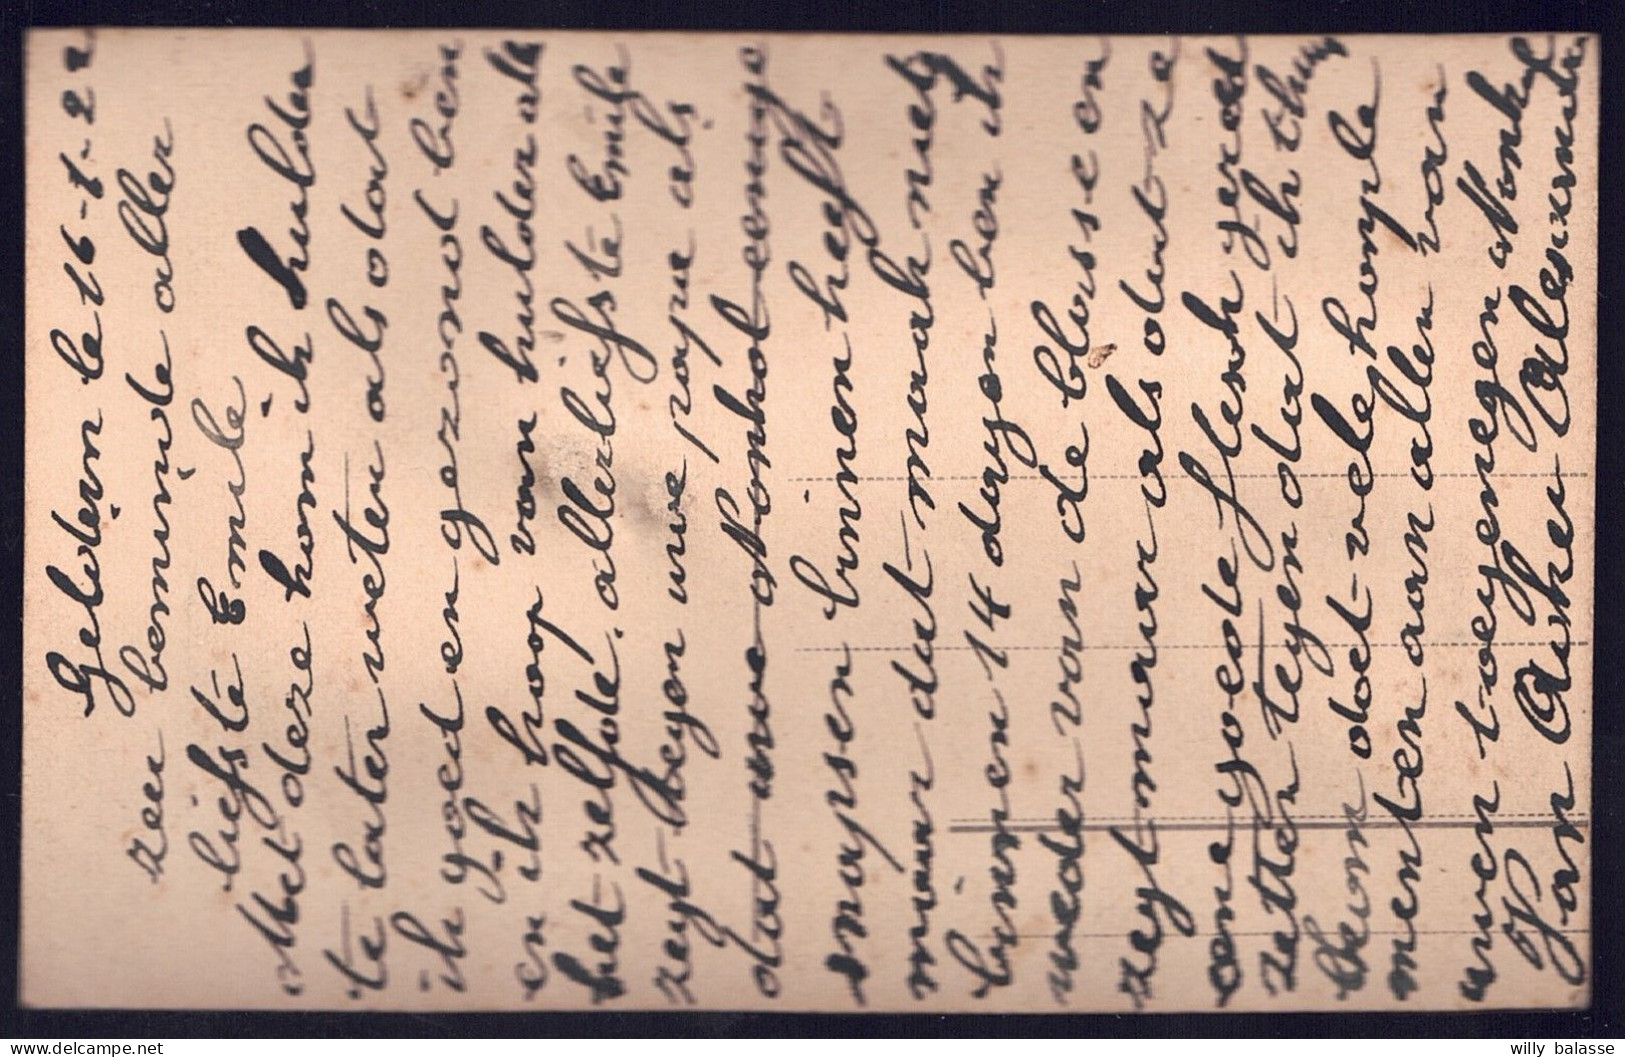 Geldern le 16-1-22
zeer beminde aller
liefste Emile
Met deze kom ik hulder
te laten weten als dat
ik goed en gezond ben
en ik hoop van hulder ook
het zelfde. allerliefste Emile
zegt tegen uwe papa als
dat uwe Nonkol eenige
snapsen binnen heeft
maar dat maak niet
binnen 14 dagen ben ik
weder van de blousse en
zegt maar als dat ze
eene goede flesch gereed
zetten tegen dat ik thuis
kom doet vele komple
menten aan allen van
uwen toegenegen Nonkel
Van